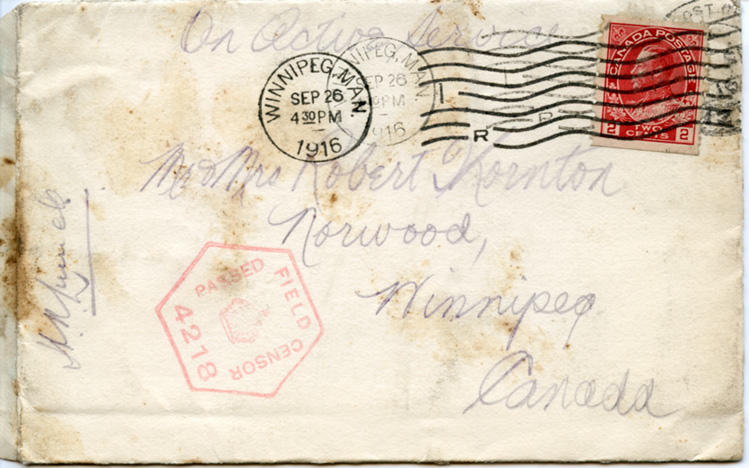 On Active Service
WINNIPEG, MAN.
SEP 26
4 30 PM
1916
WINNIPEG, MAN.
SEP 26
PM
1916
I R
CANADA POSTAGE
2 TWO CENTS 2
Mr & Mrs Robert Thornton
Norwood,
Winnipeg
Canada
PASSED FIELD CENSOR
4218